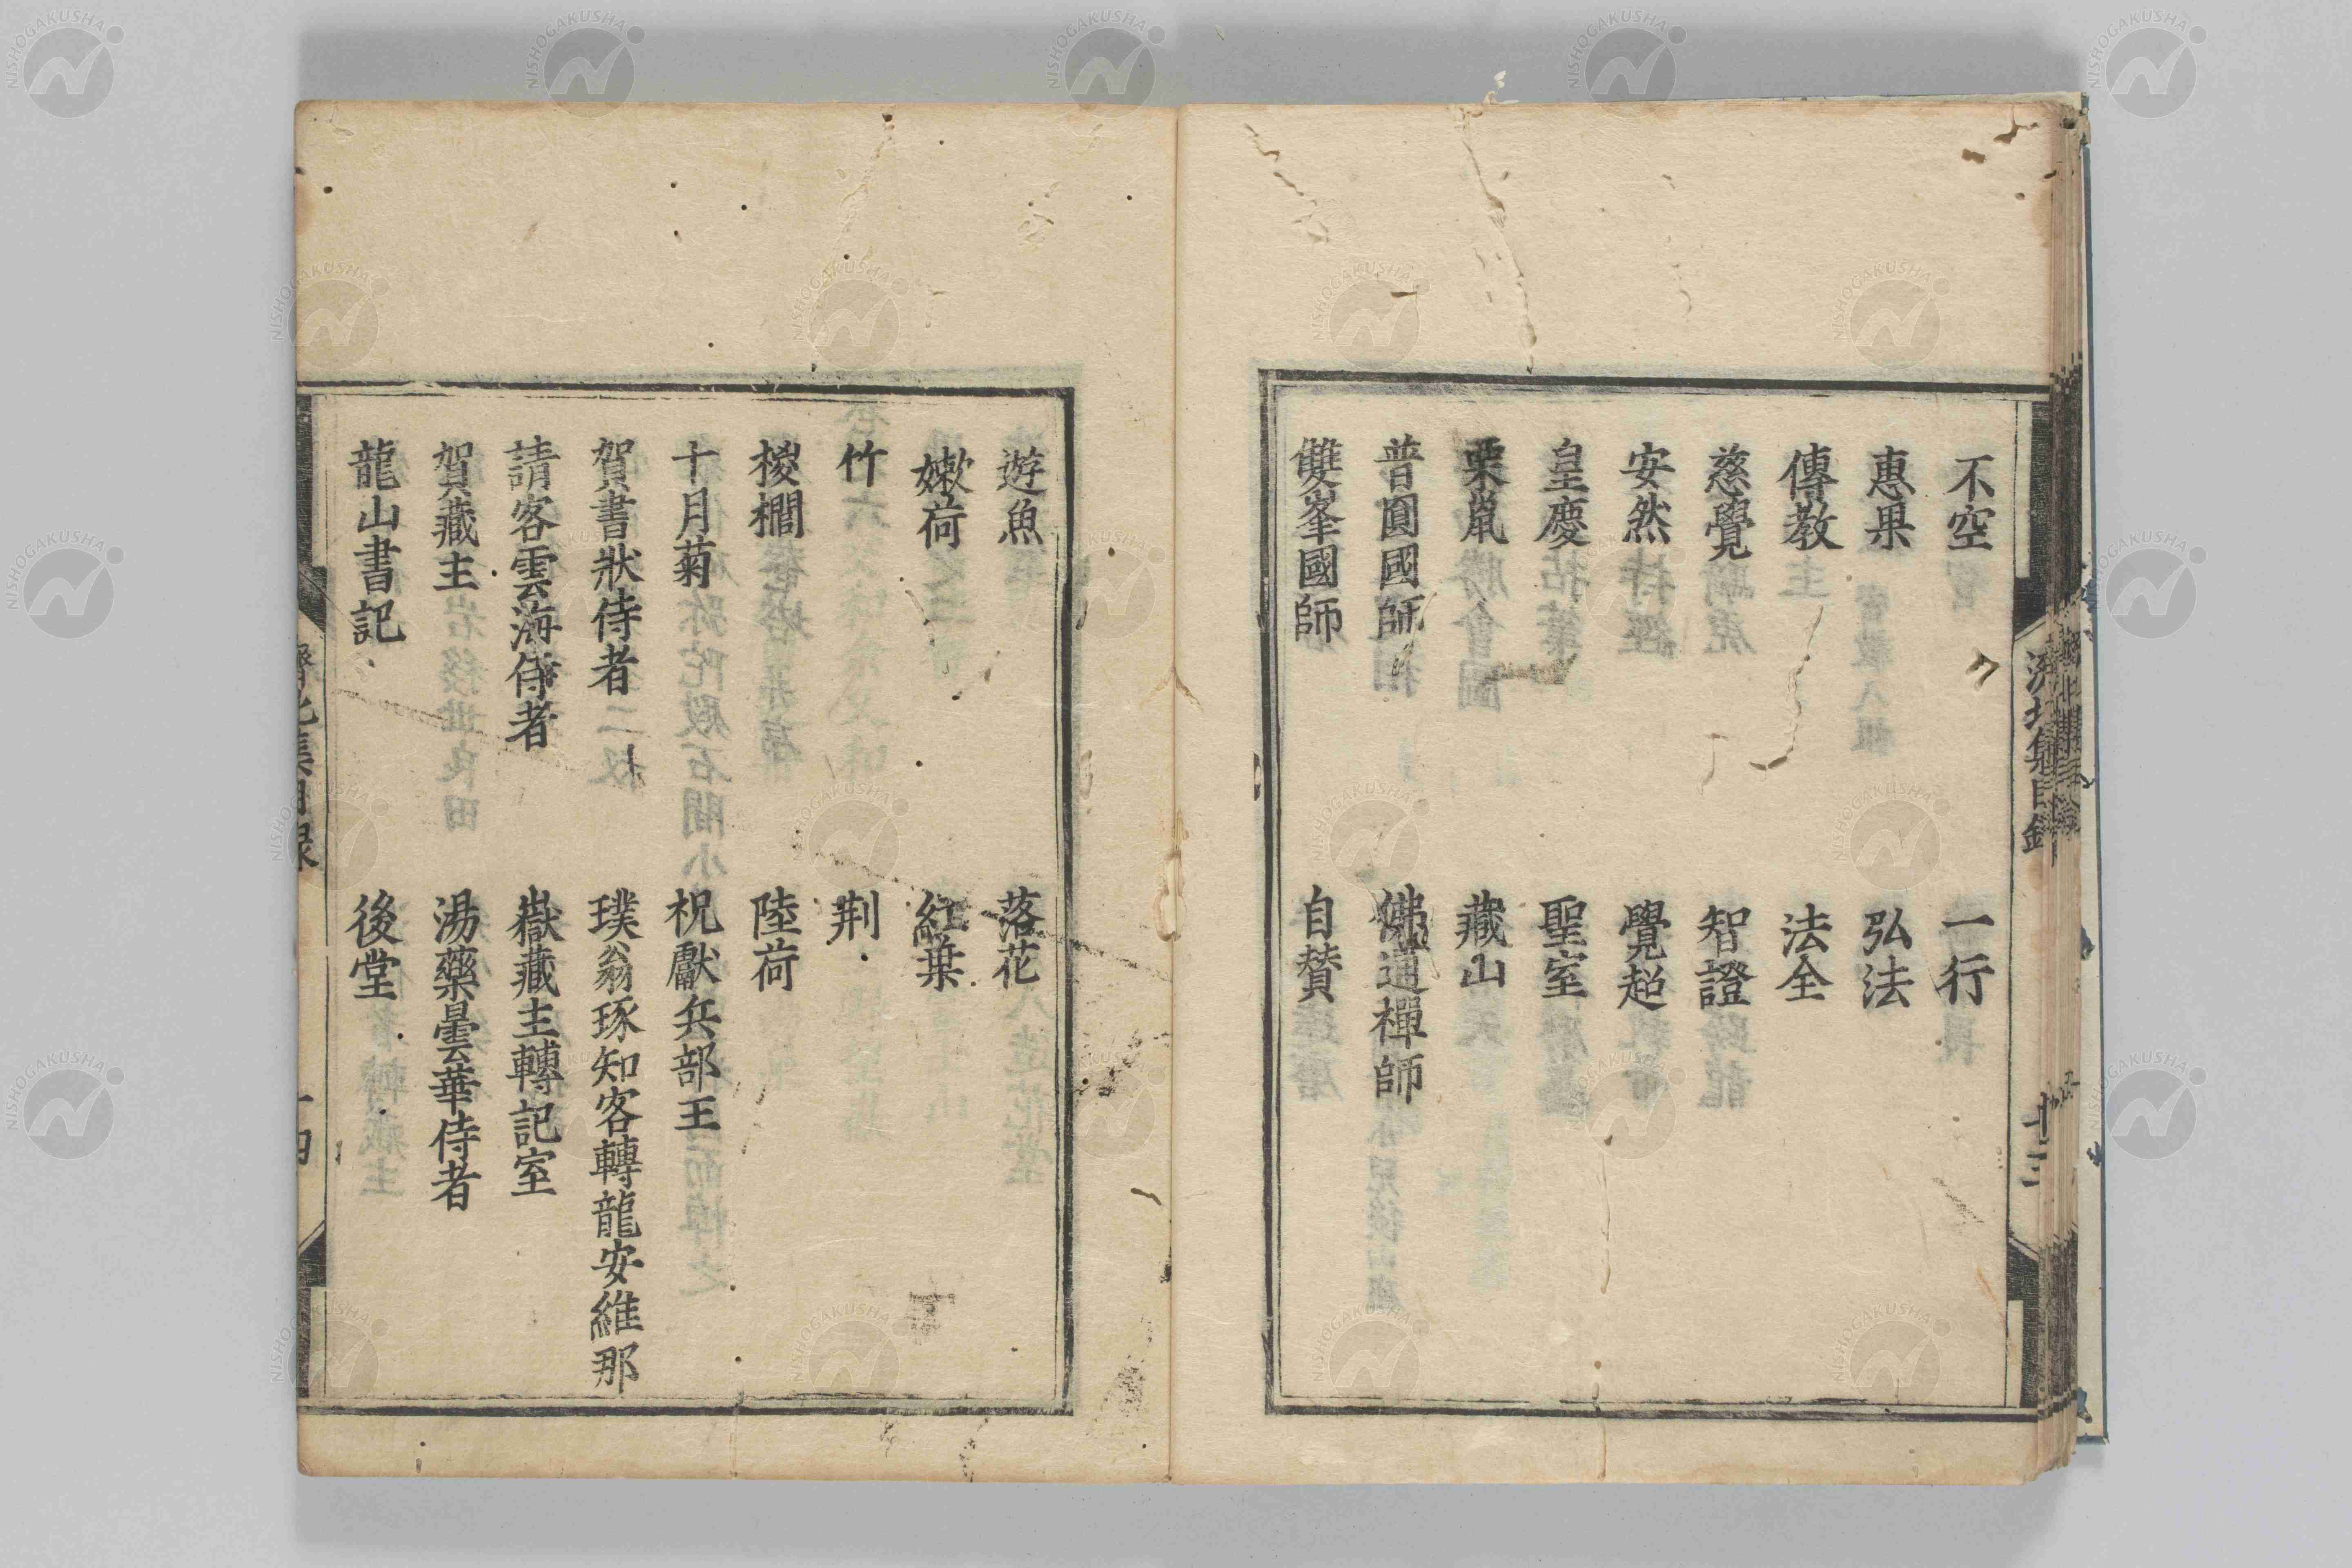 不空 一行
惠果 弘法
傳教 法全
慈覺 智證
安然 覺超
皇慶 聖室
栗鼠 藏山
普圓國師 佛通禪師
雙峯國師 自贊
遊魚 落花
嫩荷 紅葉
竹 荆
椶櫚 陸荷
十月菊 祝獻兵部王
賀書狀侍者 璞翁琢知客轉龍安維那
請客雲海侍者 嶽藏主轉記室
賀藏主 湯藥曇華侍者
龍山書記 後堂
濟北集目錄
NISHOGAKUSHA